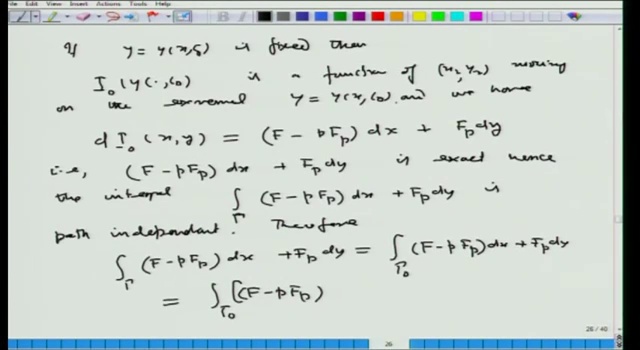 File Edit View Insert Actions Tools Help
If y = y(x, c₀) is fixed then
I₀(y(·, c₀) is a function of (x₂, y₂) moving
on the extremal y = y(x, c₀) and we have
dI₀(x, y) = (F - pFₚ) dx + Fₚdy
i.e, (F - pFₚ) dx + Fₚdy is exact hence
the integral ∫_Γ (F - pFₚ) dx + Fₚdy is
path independant. Therefore
∫_Γ (F - pFₚ) dx + Fₚdy = ∫_Γ₀ (F - pFₚ)dx + Fₚdy
= ∫_Γ₀ [(F - pFₚ)
26
26 / 40